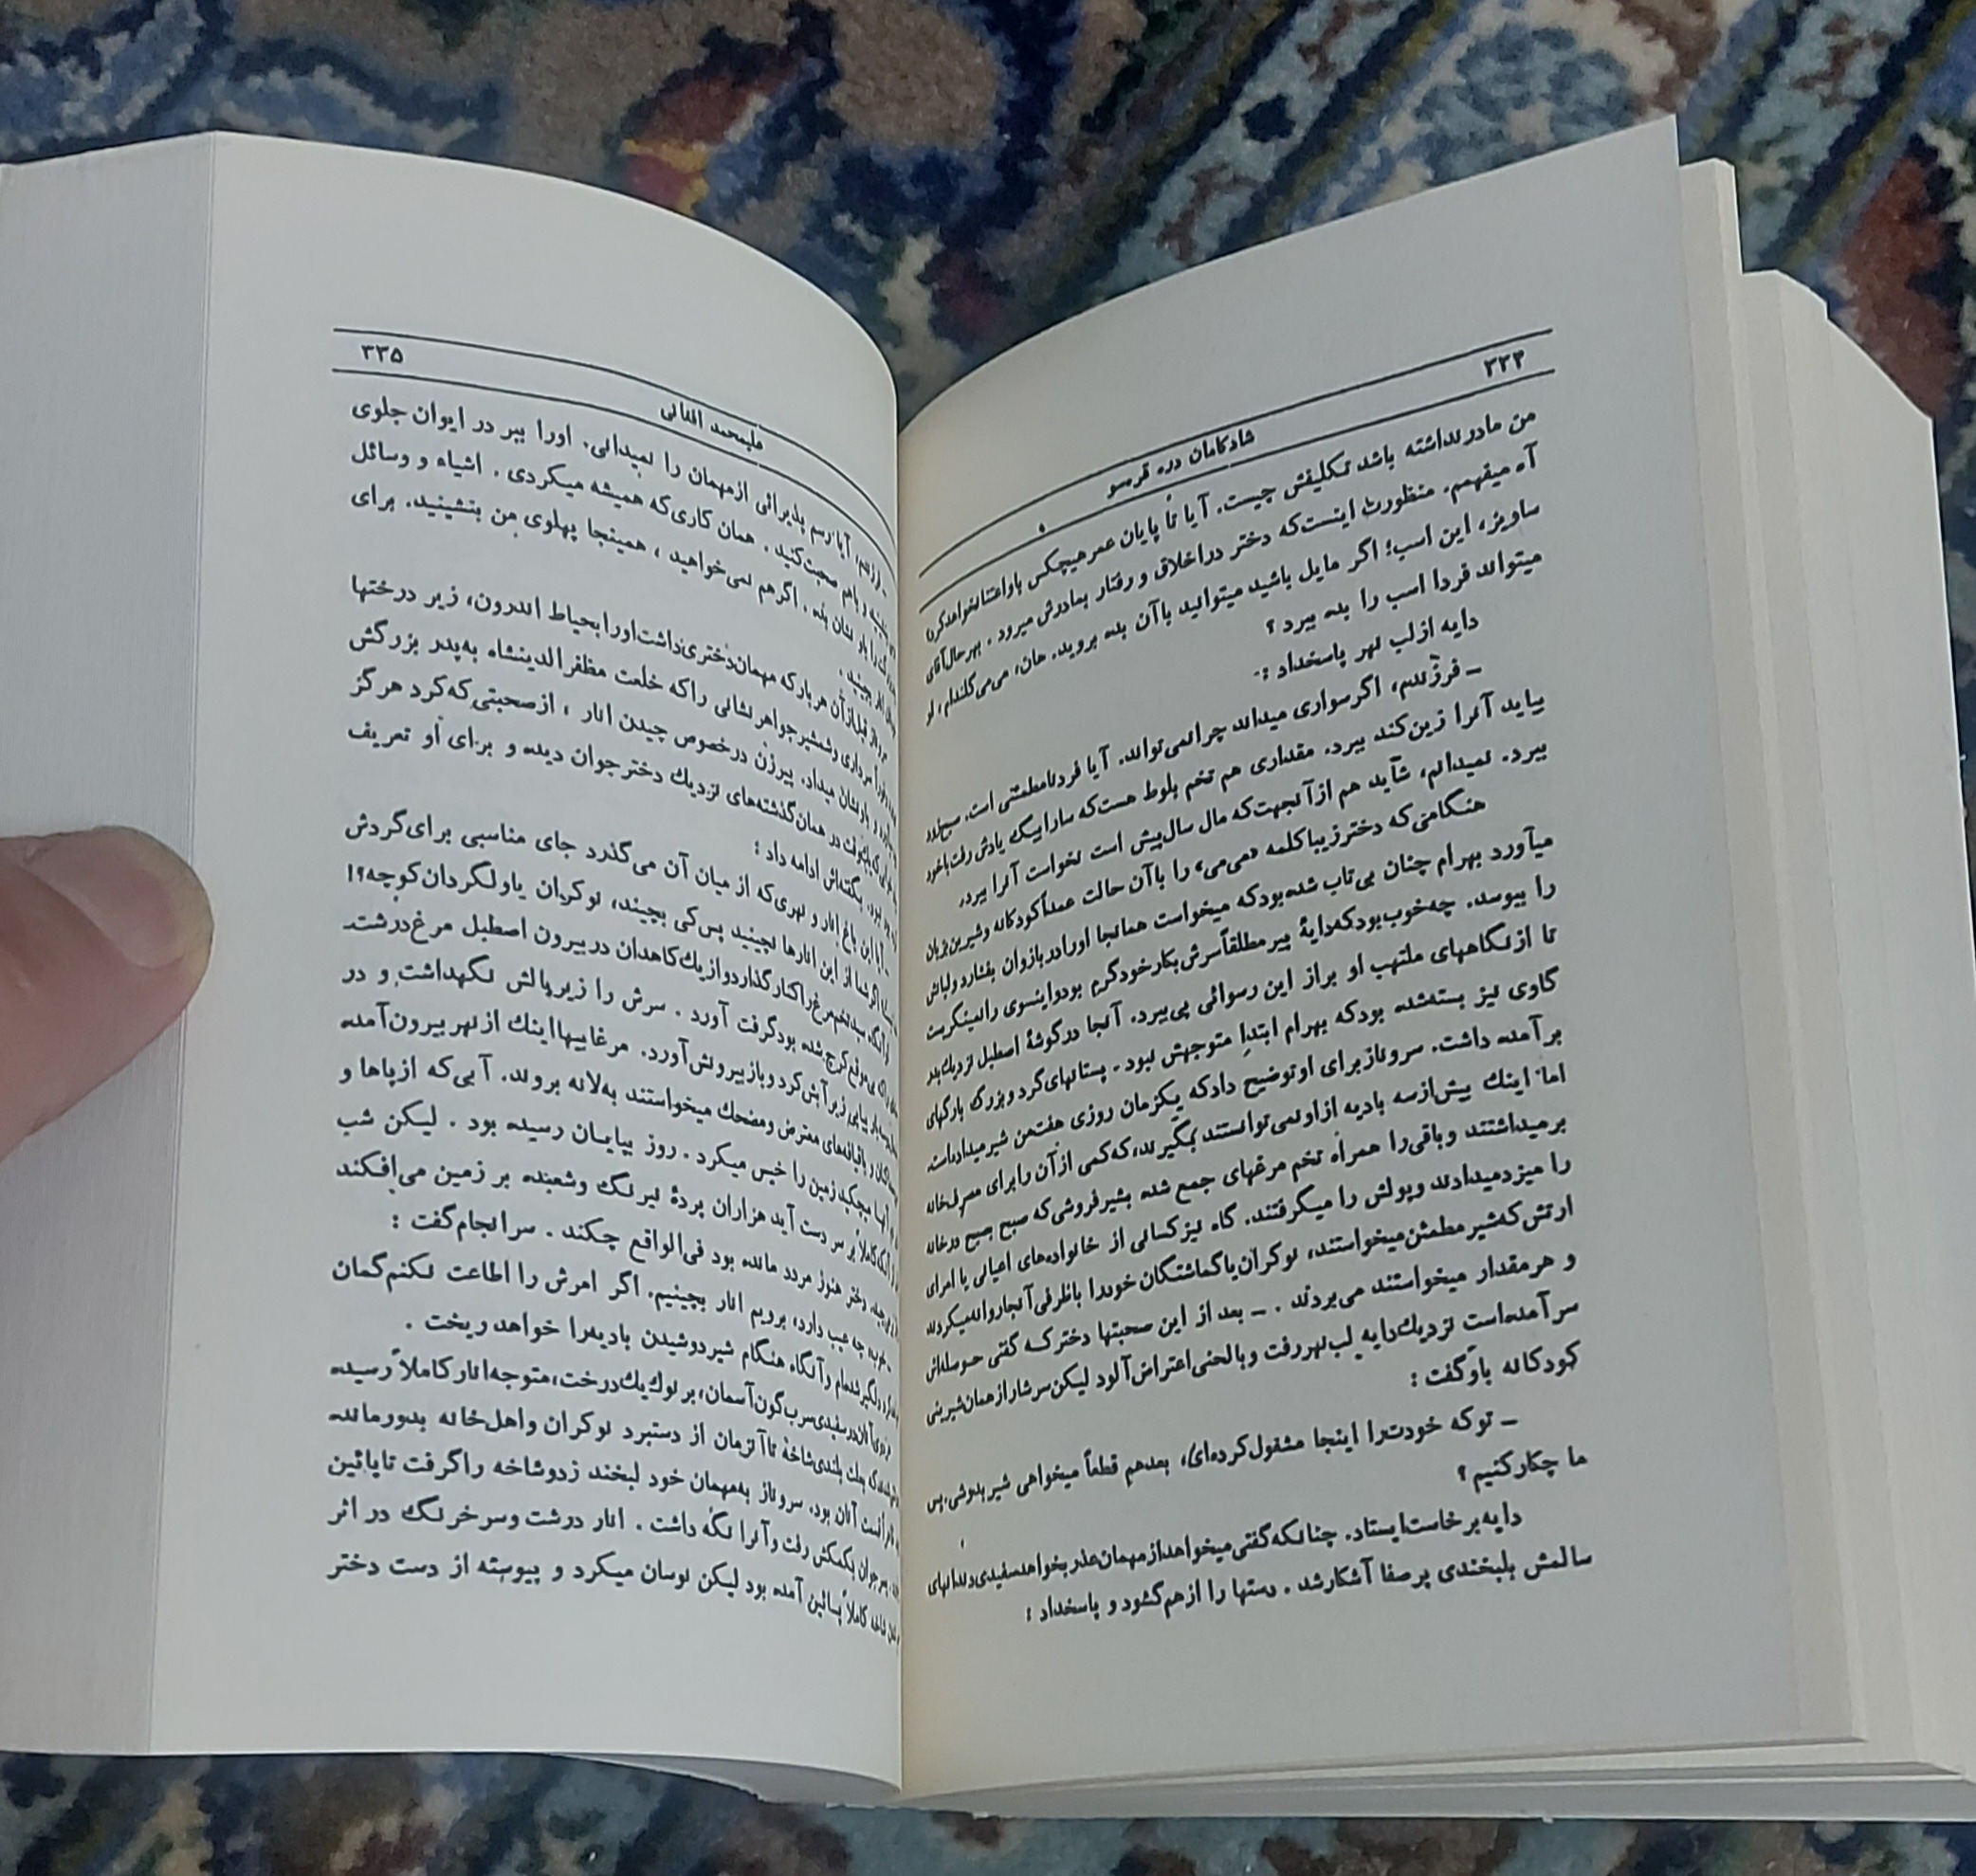 ۳۳۴
شادکامان دره قره‌سو
من مادر نداشته باشد تکلیفش چیست. آیا تا پایان عمر هیچکس باو اعتنا نخواهد کرد؟
آه میفهمم. منظورت اینست که دختر در اخلاق و رفتار بمادرش میرود. بهر حال آقای
ساویز، این اسب؛ اگر مایل باشید میتوانید با آن بده بروید. هان، می‌می گلندام، او
میتواند فردا اسب را بده ببرد؟
دایه از لب نهر پاسخداد:
ـ فرزندم، اگر سواری میداند چرا نمی‌تواند. آیا فردا مطمئنی است. صبح زود
بیاید آنرا زین کند ببرد. مقداری هم تخم بلوط هست که سارابیگ یادش رفت با خود
ببرد. نمیدانم، شاید هم از آنجهت که مال سال پیش است نخواست آنرا ببرد.
هنگامی که دختر زیبا کلمه «می‌می» را با آن حالت عمداً کودکانه و شیرین بزبان
میآورد بهرام چنان بی‌تاب شده بود که میخواست همانجا او را در بازوان بفشارد و لبانش
را ببوسد. چه خوب بود که دایهٔ پیر مطلقاً سرش بکار خود گرم بود و اینسوی را نمینگریست
تا از نگاههای ملتهب او براز این رسوائی پی ببرد. آنجا در گوشهٔ اصطبل نزدیک بدر
گاوی نیز بسته شده بود که بهرام ابتدا متوجهش نبود. پستانهای گرد و بزرگ بارگهای
برآمده داشت. سروناز برای او توضیح داد که یکزمان روزی هفت من شیر میداده است.
اما اینك بیش از سه بادیه از او نمی‌توانستند بگیرند، که کمی از آن را برای مصرف خانه
برمیداشتند و باقی را همراه تخم مرغهای جمع شده بشیر فروشی که صبح بصبح در خانه
را میزد میدادند و پولش را میگرفتند. گاه نیز کسانی از خانواده‌های اعیانی یا امرای
ارتش که شیر مطمئن میخواستند، نوکران یا گماشتگان خود را با ظرفی آنجا روانه میکردند
و هر مقدار میخواستند می‌بردند. ـ بعد از این صحبتها دخترک گفتی حوصله‌اش
سر آمده است نزدیك دایه لب نهر رفت و با لحنی اعتراض آلود لیکن سرشار از همان شیرینی
کودکانه باو گفت:
ـ تو که خودت را اینجا مشغول کرده‌ای، بعد هم قطعاً میخواهی شیر بدوشی، پس
ما چکار کنیم؟
دایه برخاست ایستاد. چنانکه گفتی میخواهد از مهمان عذر بخواهد سفیدی دندانهای
سالمش بلبخندی پر صفا آشکار شد. دستها را از هم گشود و پاسخداد:
۳۳۵
علیمحمد افغانی
ـ فرزندم، آیا رسم پذیرائی از مهمان را نمیدانی. او را ببر در ایوان جلوی
بنشینید و باهم صحبت کنید. همان کاری که همیشه میکردی. اشیاء و وسائل
را باو نشان بده. اگر هم نمی‌خواهید، همینجا پهلوی من بنشینید. برای
انار بچینید.
قبل از آن هر بار که مهمان دختری داشت او را بحیاط اندرون، زیر درختها
سرداری و شمشیر جواهر نشانی را که خلعت مظفرالدینشاه به پدر بزرگش
باو نشان میداد. پیرزن در خصوص چیدن انار، از صحبتی که کرد هرگز
در همان گذشته‌های نزدیك دختر جوان دیده و برای او تعریف
بود. بگفته‌اش ادامه داد:
ـ آیا این باغ انار و نهری که از میان آن می‌گذرد جای مناسبی برای گردش
اگر شما از این انارها نچینید پس کی بچیند، نوکران یا ولگردان کوچه؟!
آنگاه سبد تخم مرغ را کنار گذارد و از یك کاهدان در بیرون اصطبل مرغ درشت
کرچ شده بود گرفت آورد. سرش را زیر بالش نگهداشت و در
زیر آبش کرد و باز بیرونش آورد. مرغابیها اینك از نهر بیرون آمده
با قیافه‌های معترض و مضحك میخواستند به لانه بروند. آبی که از پاها و
آنها میچکید زمین را خیس میکرد. روز بپایان رسیده بود. لیکن شب
کاملاً بر سر دست آید هزاران پردهٔ نیرنگ و شعبده بر زمین می‌افکند
دختر هنوز مردد مانده بود فی‌الواقع چکند. سرانجام گفت:
چه عیب دارد، برویم انار بچینیم. اگر امرش را اطاعت نکنم گمان
دلگیر شده‌ام و آنگاه هنگام شیر دوشیدن بادیه‌را خواهد ریخت.
سفیدی سرب گون آسمان، بر نوك یك درخت، متوجه انار کاملاً رسیده
بعلت بلندی شاخه تا آنزمان از دستبرد نوکران و اهل خانه بدور مانده
آنان بود. سروناز به مهمان خود لبخند زد و شاخه را گرفت تا پائین
جوان بکمکش رفت و آنرا نگه داشت. انار درشت و سرخرنگ در اثر
شاخه کاملاً پائین آمده بود لیکن نوسان میکرد و پیوسته از دست دختر